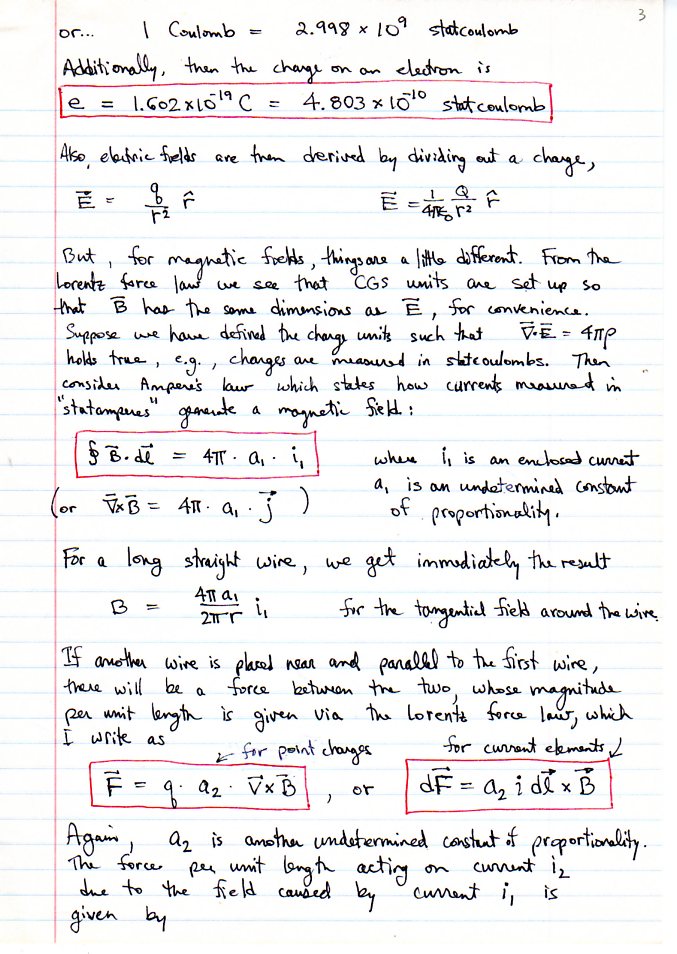 3
or... 1 Coulomb = 2.998 × 10⁹ statcoulomb
Additionally, then the charge on an electron is
e = 1.602×10⁻¹⁹ C = 4.803×10⁻¹⁰ statcoulomb
Also, electric fields are then derived by dividing out a charge,
E⃗ = q/r² r̂    E⃗ = 1/4πε₀ Q/r² r̂
But, for magnetic fields, things are a little different. From the
Lorentz force law we see that CGS units are set up so
that B⃗ has the same dimensions as E⃗, for convenience.
Suppose we have defined the charge units such that ∇⃗·E⃗ = 4πρ
holds true, e.g., charges are measured in statcoulombs. Then
consider Ampere's law which states how currents measured in
"statamperes" generate a magnetic field:
∮ B⃗·dl⃗ = 4π · a₁ · i₁    where i₁ is an enclosed current
a₁ is an undetermined constant
(or ∇⃗×B⃗ = 4π · a₁ · j⃗ )    of proportionality.
For a long straight wire, we get immediately the result
B = 4πa₁/2πr i₁    for the tangential field around the wire.
If another wire is placed near and parallel to the first wire,
there will be a force between the two, whose magnitude
per unit length is given via the Lorentz force law, which
I write as
↙ for point charges    for current elements ↙
F⃗ = q · a₂ · v⃗×B⃗ , or dF⃗ = a₂ i dl⃗ × B⃗
Again, a₂ is another undetermined constant of proportionality.
The force per unit length acting on current i₂
due to the field caused by current i₁ is
given by